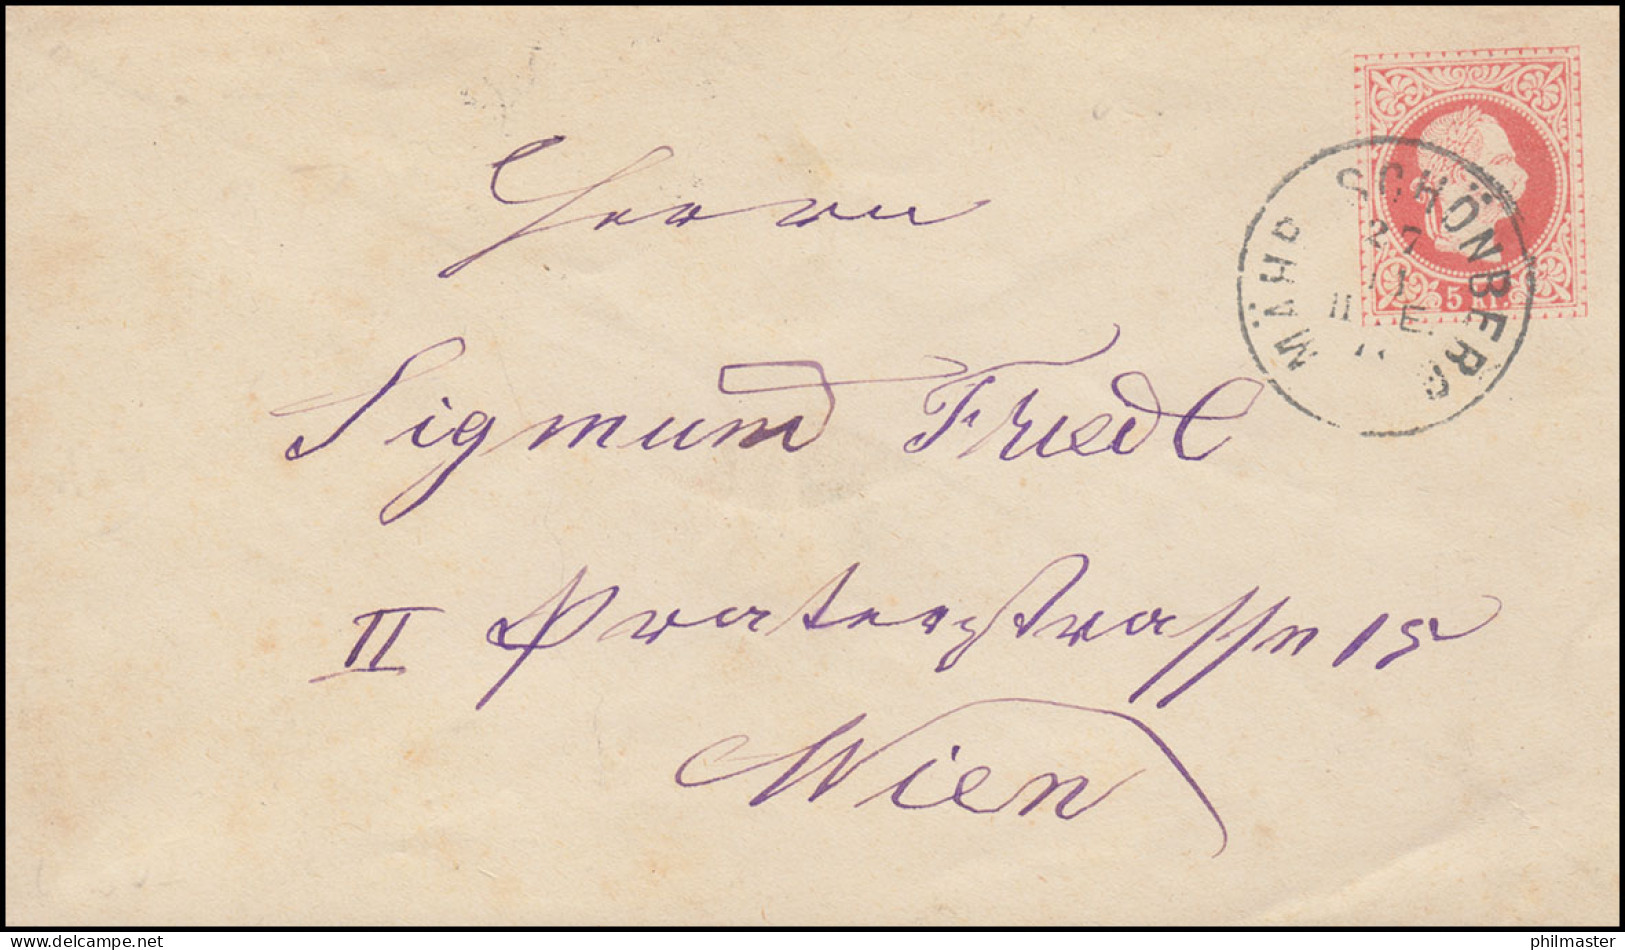 MÄHR SCHÖNBERG
27
11
II E.
5 Kr.
Herrn
Sigmund Friedl
II Praterstrasse 15
Wien
www.delcampe.net
philmaster